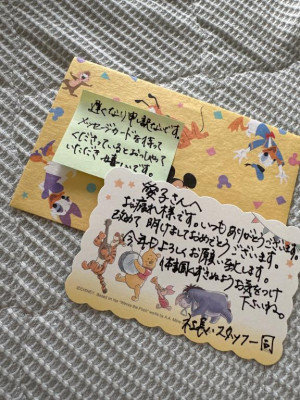 遅くなり申し訳ないです。
メッセージカードを待って
くださっているとおっしゃって
いただき嬉しいです。
愛子さんへ
お疲れ様です。いつもありがとうございます。
改めて明けましておめでとうございます。
今年もよろしくお願い致します。
体調崩さぬようお気をつけ
下さいね。
社長、スタッフ一同